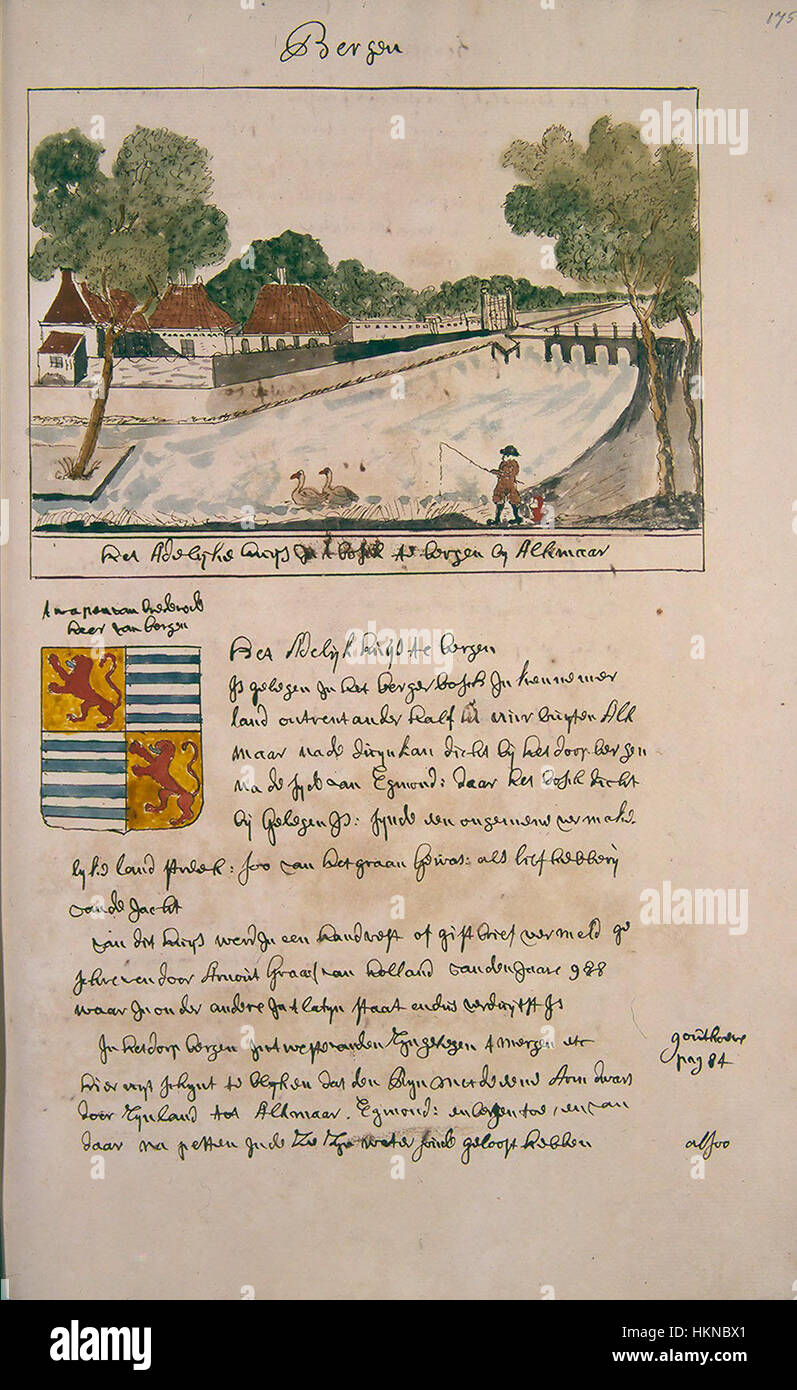 175
Bergen
het Adelyke huys in't bosch te bergen by Alkmaar
't wapen van brederode
heer van bergen
Het Adelyk huys te bergen
Is gelegen In het berger bosch In kennemer
land ontrent ander half uur buyten Alk
maar na de duyn kan dicht by het dorp bergen
na de syde van Egmond: daar het bosch dicht
by gelegen Is: synde een ongemeene vermake
lyke land streek: soo van het graan gewas: als liefhebbery
van de Jacht
van dit huys werd In een handvest of giftbrief vermeld ge
schreven door Arnout Graaf van holland van den Jaare 988
waar In onder andere In't latyn staat en dus verduytst Is
In het dorp bergen zuytwestwanden Zyn gelegen 4 mergen etc
gouthoeve
pag 84
hier uyt schynt te blyken dat den Ryn met de eene Arm dwars
door Rynland tot Alkmaar. Egmond: en bergen toe, en van
daar na petten In de Zee Zyn water soude geloost hebben
alsoo
alamy
alamy
Image ID: HKNBX1
www.alamy.com